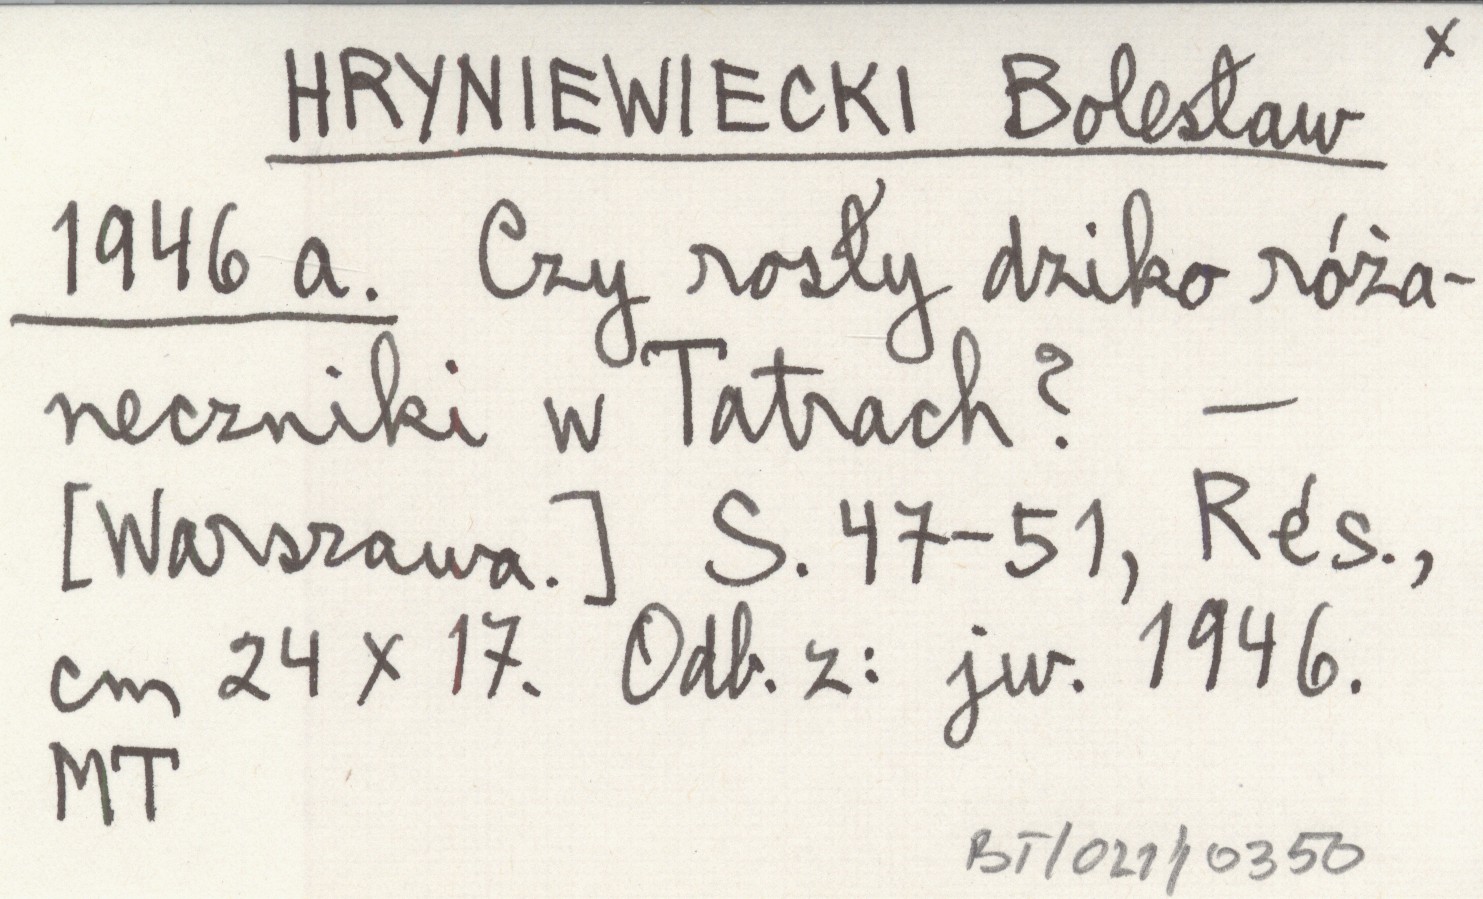 x
HRYNIEWIECKI Bolesław
1946 a. Czy rosły dziko róża-
neczniki w Tatrach? —
[Warszawa.] S. 47-51, Rés.,
cm 24 x 17. Odb. z: jw. 1946.
MT
BT/021/0350